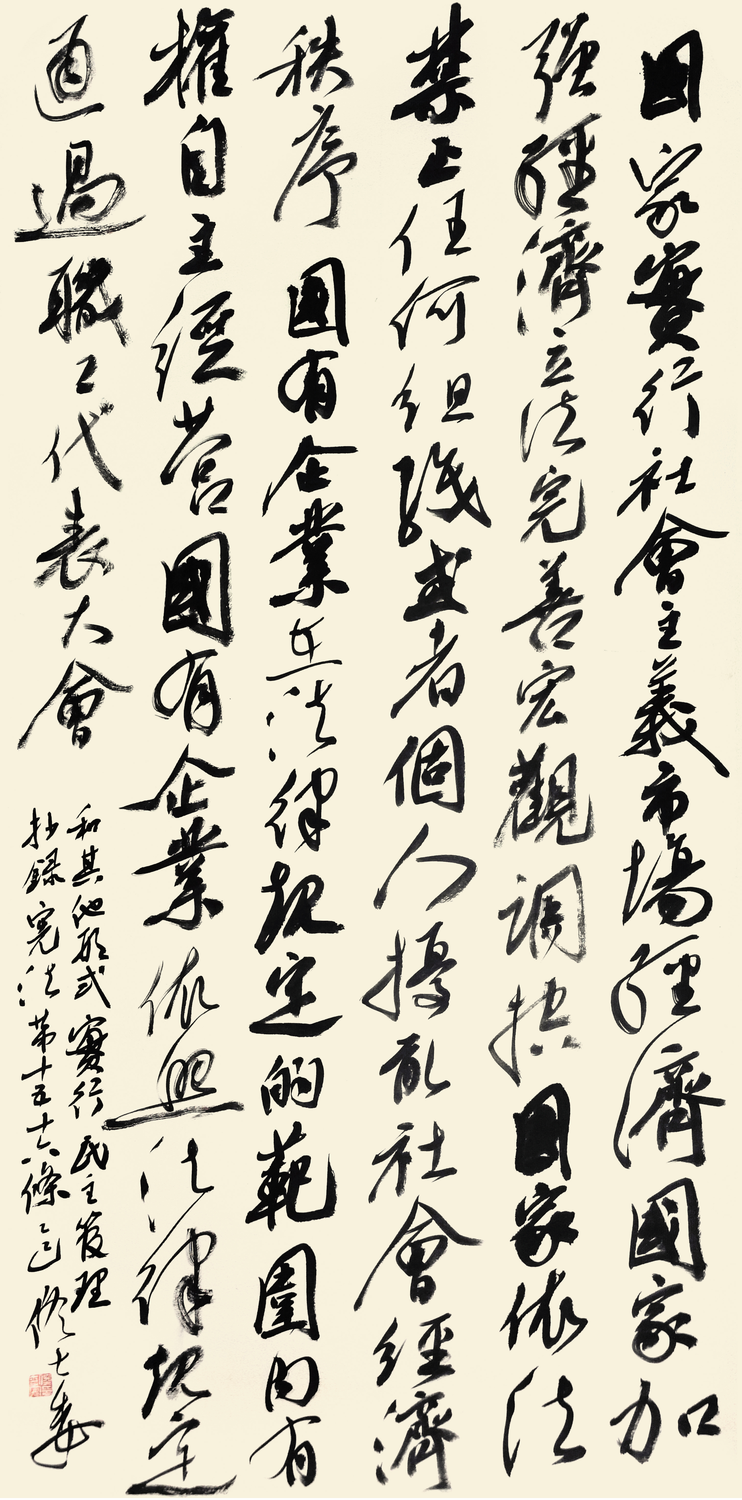 国家實行社會主義市場經濟國家加
强經濟立法完善宏觀調控国家依法
禁止任何組織或者個人擾亂社會經濟
秩序國有企業在法律規定的範圍内有
權自主經營國有企業依照法律規定
通過職工代表大會
和其他形式實行民主管理
抄録憲法第十五十六條乙巳